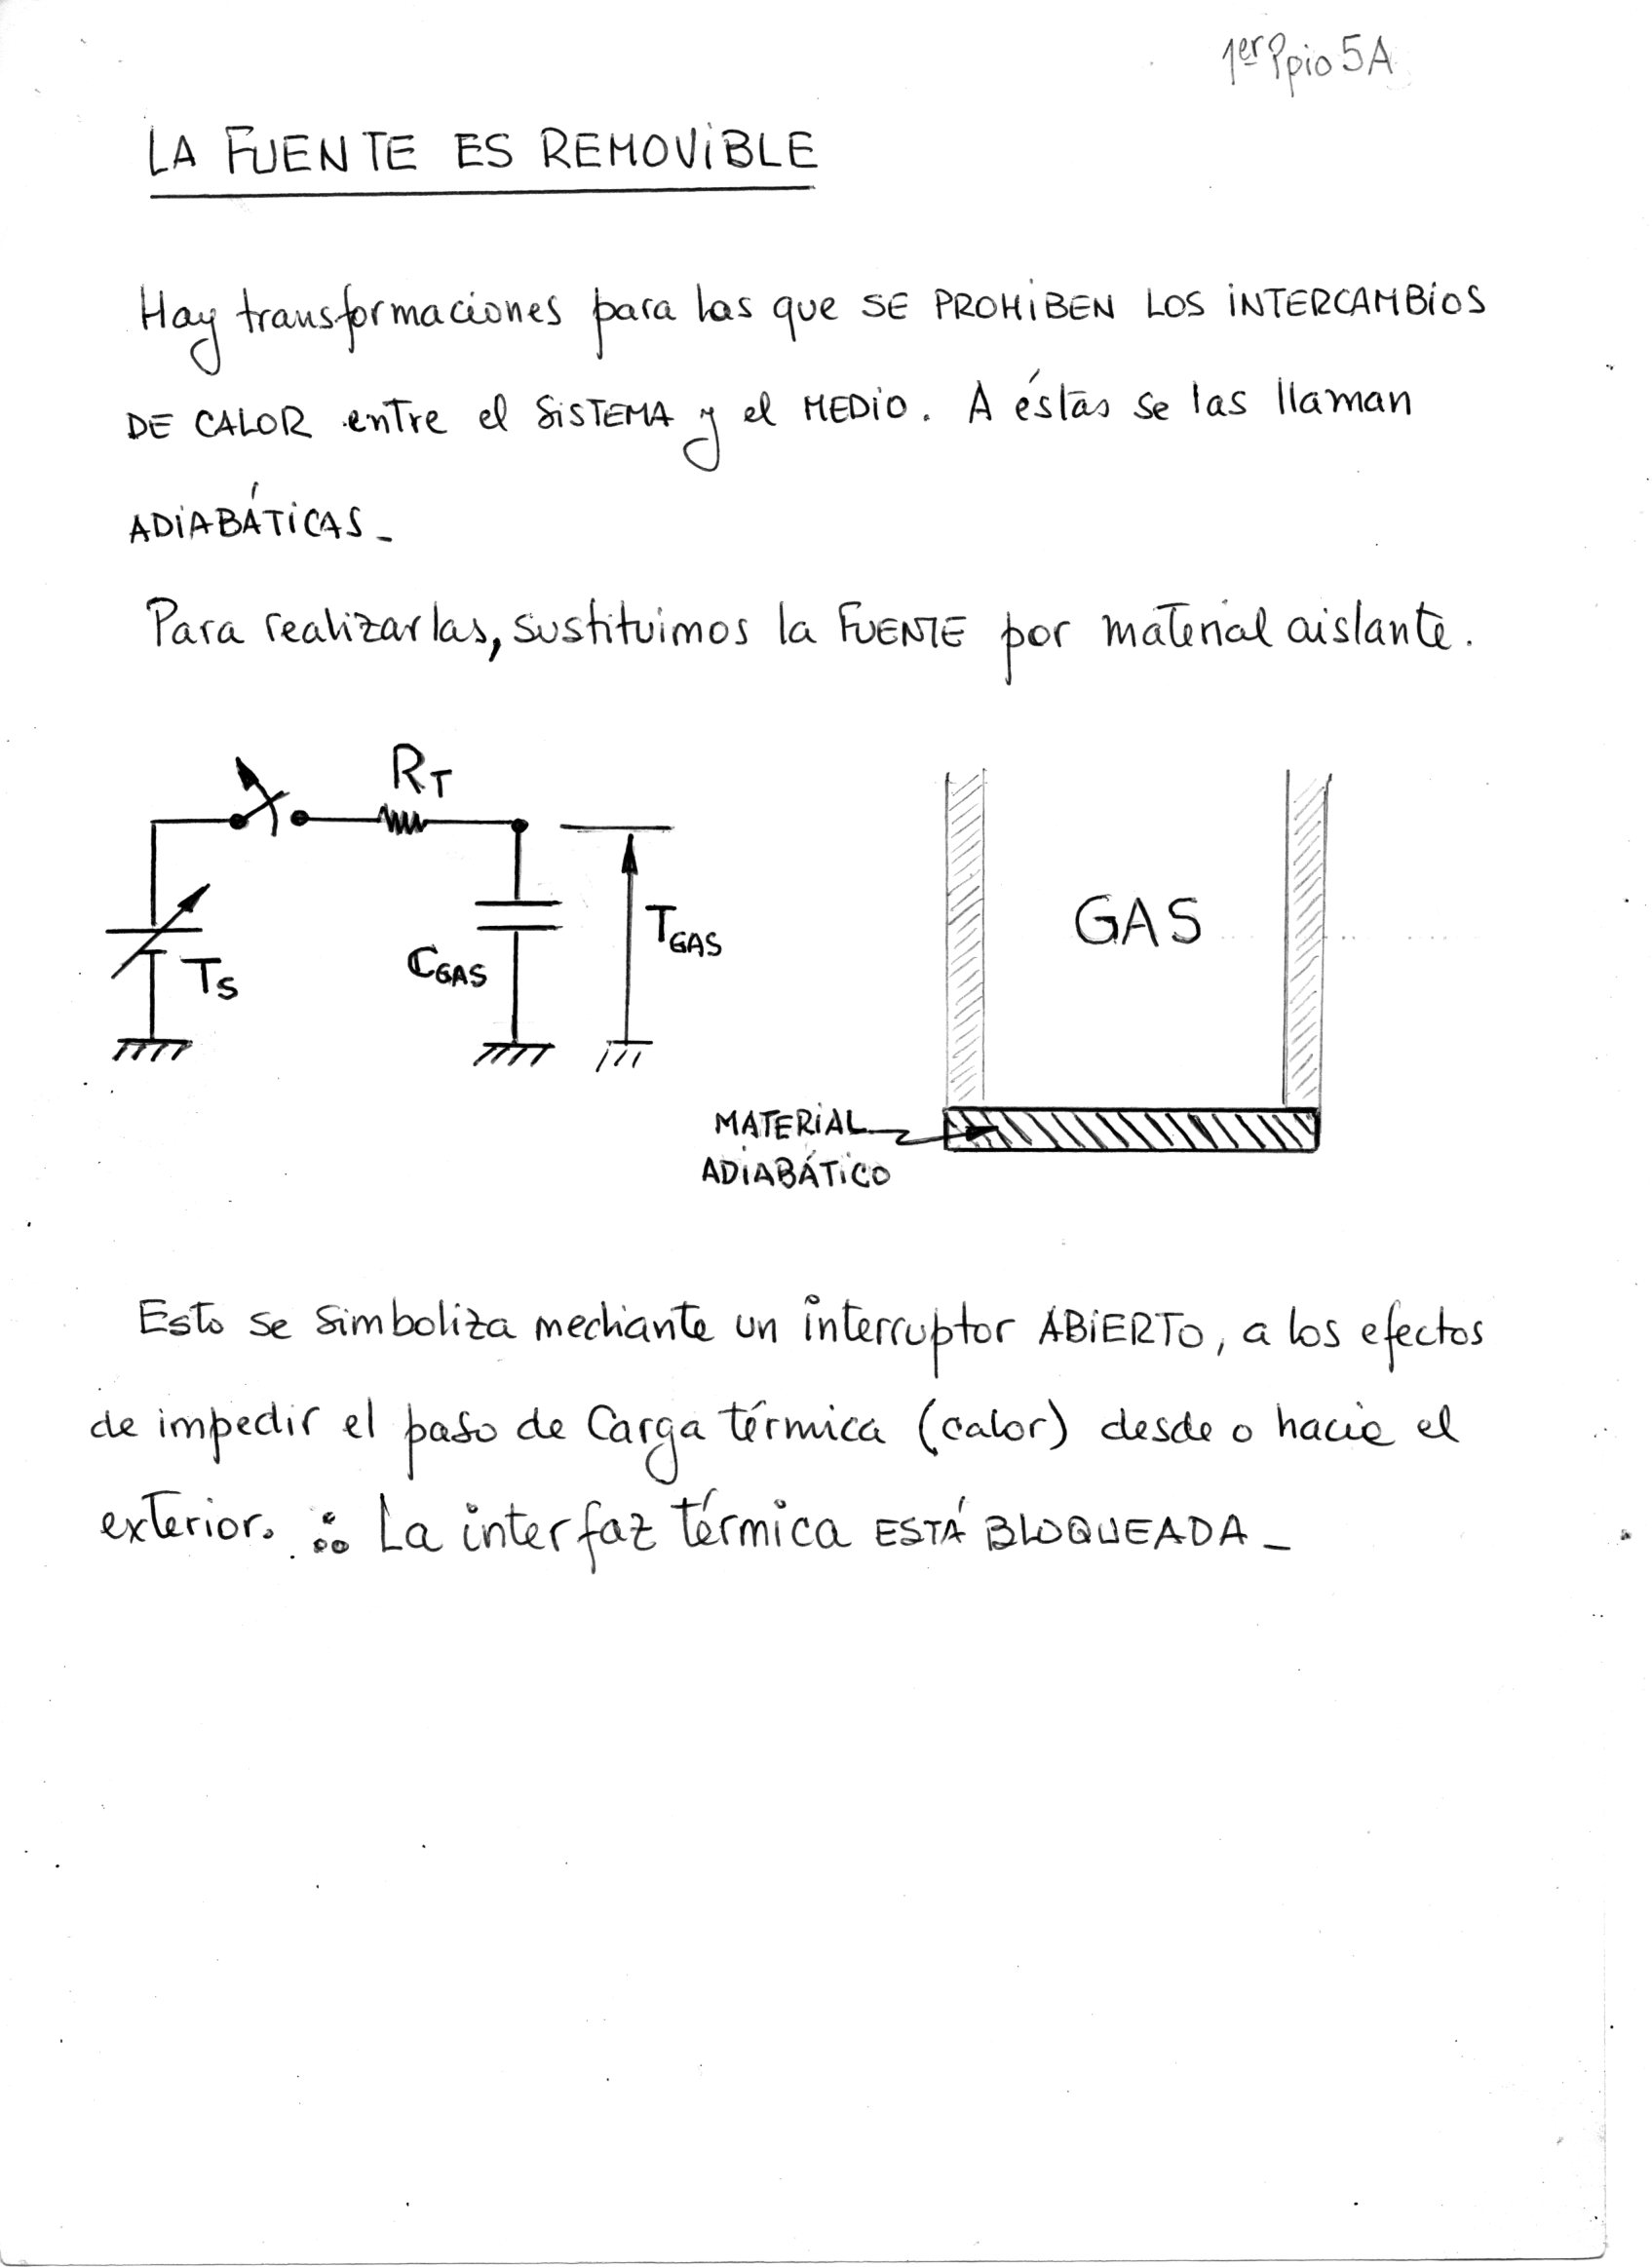 1er Ppio 5A
LA FUENTE ES REMOViBLE
Hay transformaciones para las que SE PROHiBEN LOS iNTERCAMBiOS
DE CALOR entre el SiSTEMA y el MEDiO. A éstas se las llaman
ADiABÁTiCAS_
Para realizarlas, sustituimos la FUENTE por material aislante.
RT
TS
CGAS
TGAS
GAS
MATERiAL
ADiABÁTiCO
Esto se simboliza mediante un interruptor ABiERTO, a los efectos
de impedir el paso de Carga térmica (calor) desde o hacia el
exterior. ∴ La interfaz térmica ESTÁ BLOQUEADA_